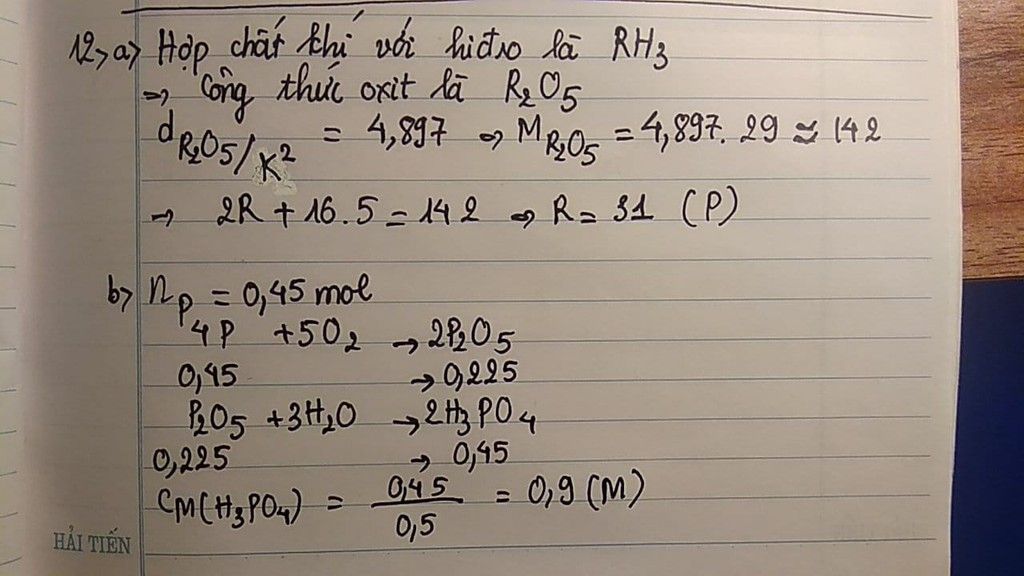 12, a, Hợp chất khí với hiđro là RH3
→ Công thức oxit là R2O5
dR2O5/K2 = 4,897 ⇒ MR2O5 = 4,897.29 ≈ 142
→ 2R + 16.5 = 142 ⇒ R = 31 (P)
b, nP = 0,45 mol
4P + 5O2 → 2P2O5
0,45 → 0,225
P2O5 + 3H2O → 2H3PO4
0,225 → 0,45
CM(H3PO4) = 0,45/0,5 = 0,9 (M)
HẢI TIẾN